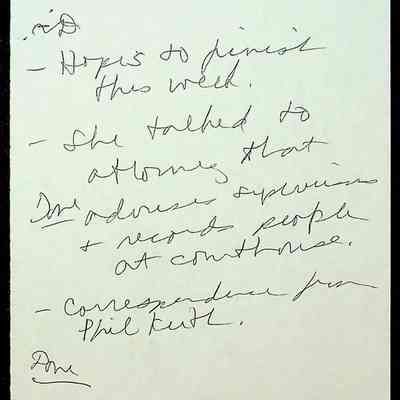 - Hopes to finish
this week.
- She talked to
attorney that
Done advises supervisors
+ records people
at courthouse.
- Correspondence from
Phil Keith.
Done